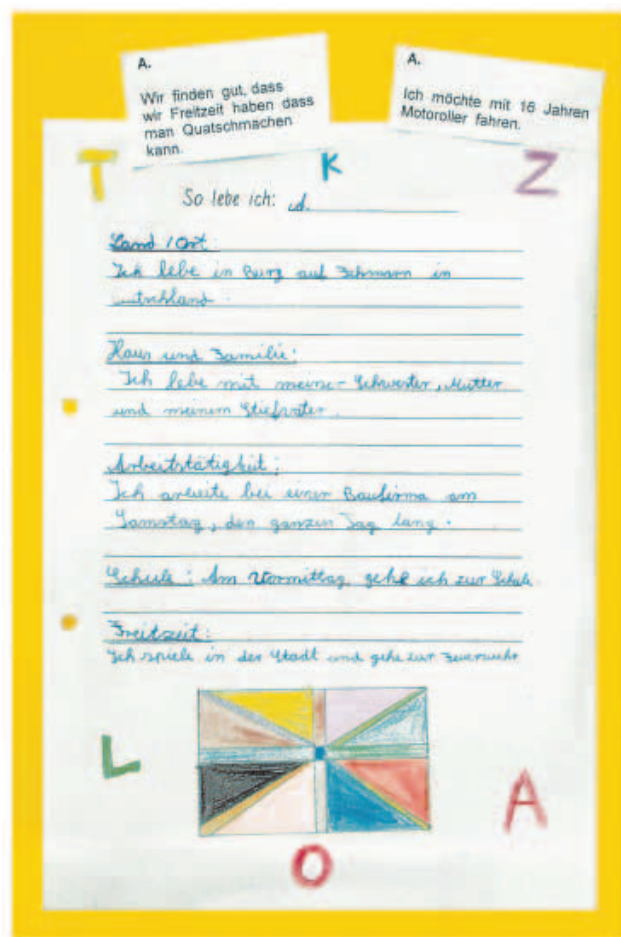 A.
Wir finden gut, dass
wir Freitzeit haben dass
man Quatschmachen
kann.
A.
Ich möchte mit 16 Jahren
Motoroller fahren.
T
K
Z
So lebe ich:
Land / Ort:
Ich lebe in Burg auf Fehmarn in
Haus und Familie:
Ich lebe mit meiner Schwester, Mutter
und meinem Stiefvater.
Arbeitstätigkeit:
Ich areite bei einer Baufirma am
Samstag, den ganzen Tag lang.
Schule: Am Vormittag gehe ich zur Schule
Freitzeit:
Ich spiele in der Stadt und gehe zur Feuerwehr
L
A
O